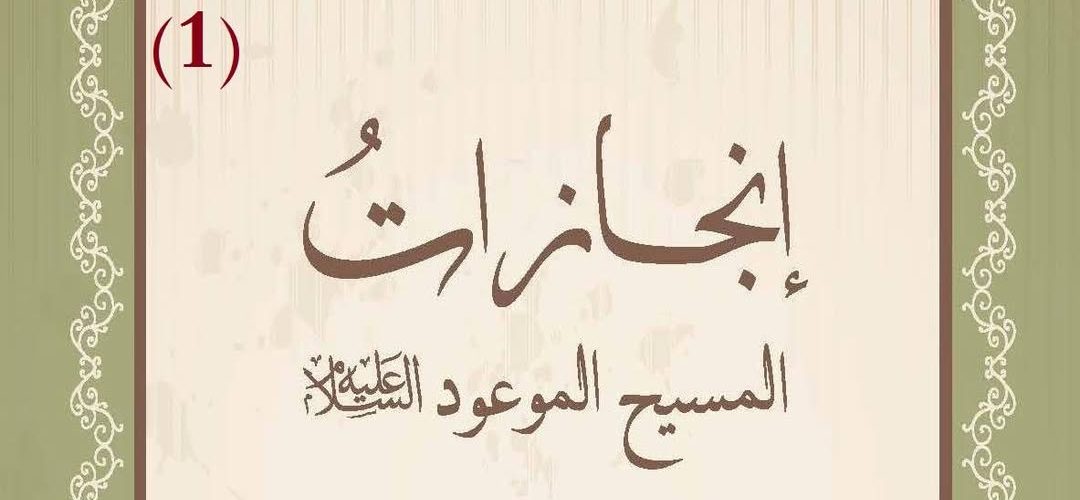 (1)
إنجازاتُ
المسيح الموعود عليه السلام